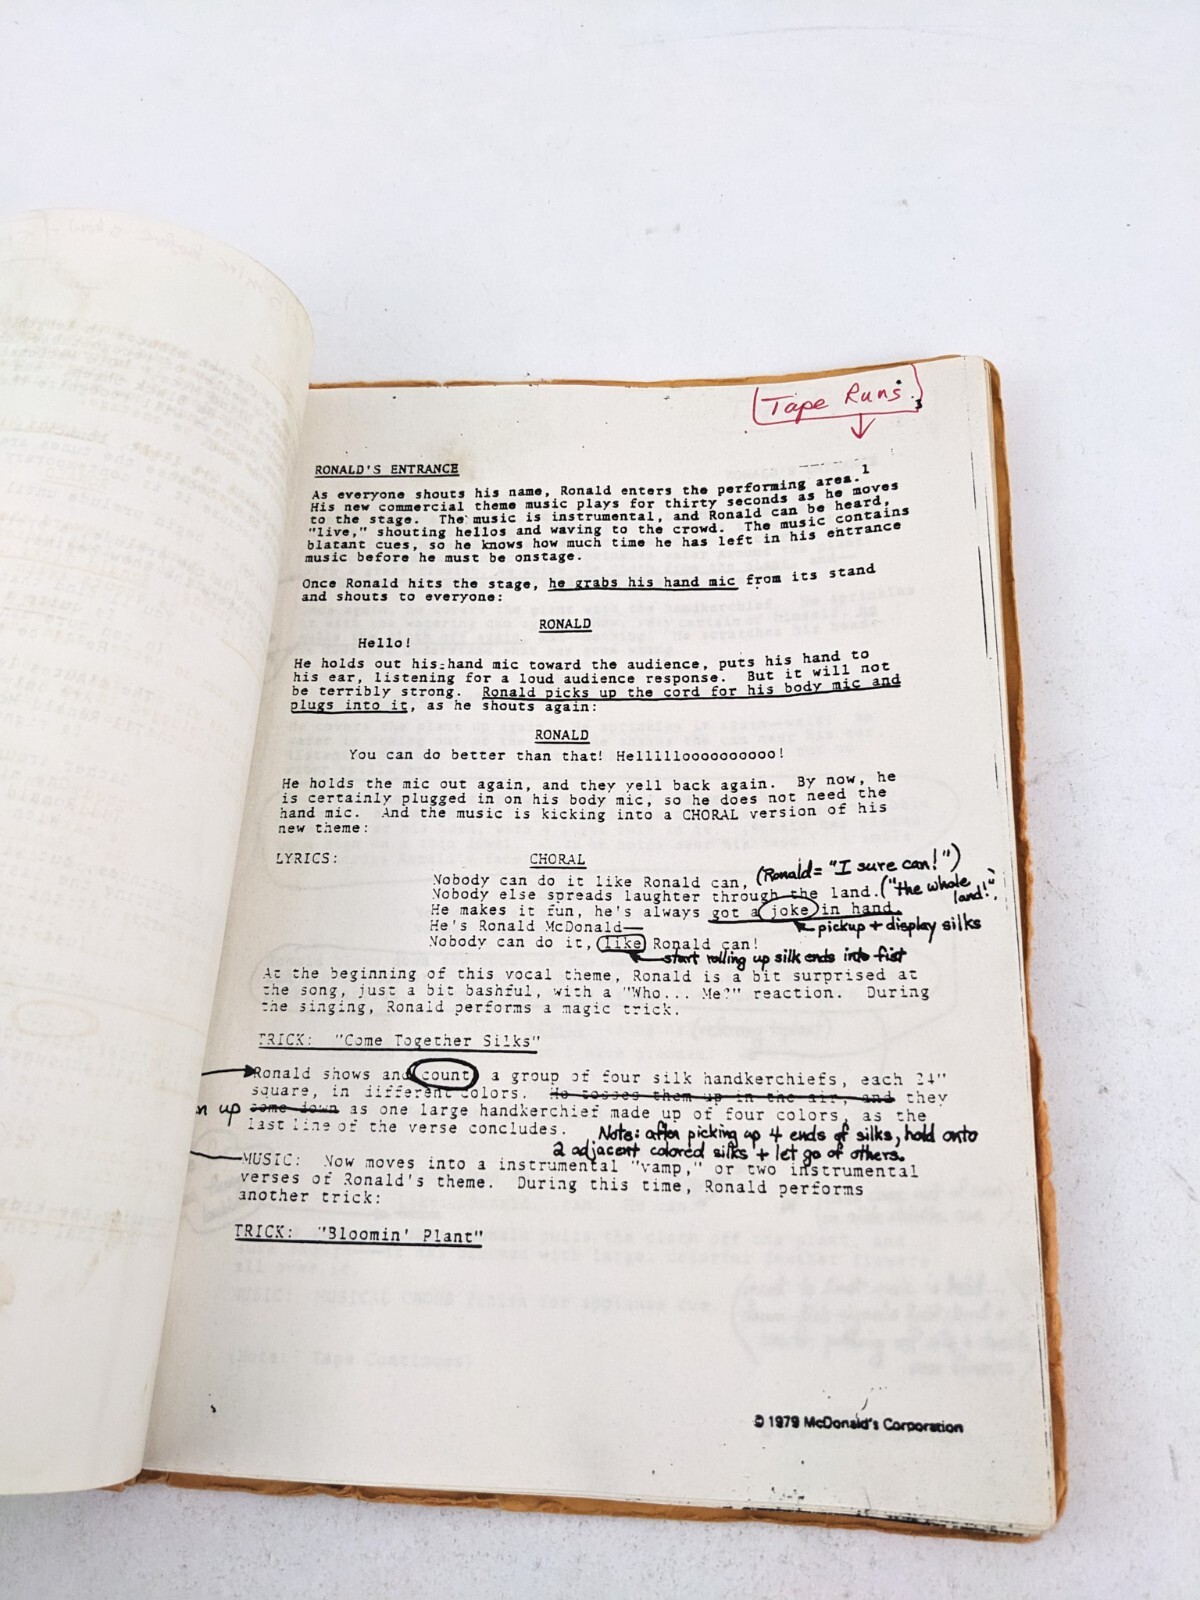 Tape Runs
RONALD'S ENTRANCE
As everyone shouts his name, Ronald enters the performing area.1
His new commercial theme music plays for thirty seconds as he moves
to the stage. The music is instrumental, and Ronald can be heard,
"live," shouting hellos and waving to the crowd. The music contains
blatant cues, so he knows how much time he has left in his entrance
music before he must be onstage.
Once Ronald hits the stage, he grabs his hand mic from its stand
and shouts to everyone:
RONALD
Hello!
He holds out his hand mic toward the audience, puts his hand to
his ear, listening for a loud audience response. But it will not
be terribly strong. Ronald picks up the cord for his body mic and
plugs into it, as he shouts again:
RONALD
You can do better than that! Helllllooooooooooo!
He holds the mic out again, and they yell back again. By now, he
is certainly plugged in on his body mic, so he does not need the
hand mic. And the music is kicking into a CHORAL version of his
new theme:
LYRICS: CHORAL
Nobody can do it like Ronald can, (Ronald= "I sure can!")
Nobody else spreads laughter through the land. ("the whole land!")
He makes it fun, he's always got a joke in hand.
He's Ronald McDonald— pickup + display silks
Nobody can do it, like Ronald can!
start rolling up silk ends into fist
At the beginning of this vocal theme, Ronald is a bit surprised at
the song, just a bit bashful, with a "Who... Me?" reaction. During
the singing, Ronald performs a magic trick.
TRICK: "Come Together Silks"
Ronald shows and count a group of four silk handkerchiefs, each 24"
square, in different colors. He tosses them up in the air, and they
up come down as one large handkerchief made up of four colors, as the
last line of the verse concludes. Note: after picking up 4 ends of silks, hold onto
2 adjacent colored silks + let go of others.
MUSIC: Now moves into a instrumental "vamp," or two instrumental
verses of Ronald's theme. During this time, Ronald performs
another trick:
TRICK: "Bloomin' Plant"
© 1979 McDonald's Corporation